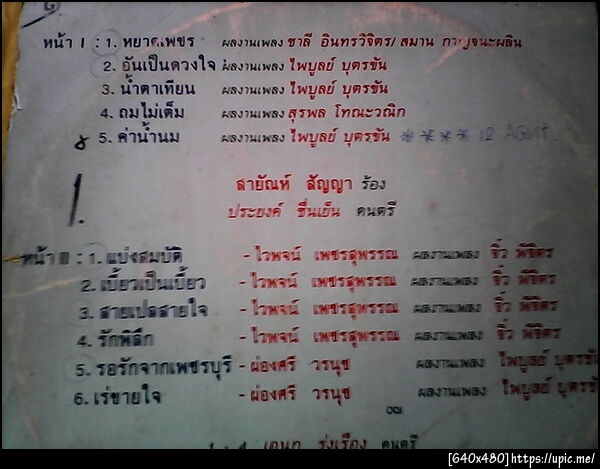 หน้า I : 1. หยาดเพชร ผลงานเพลง ชาลี อินทรวิจิตร/ สมาน กาญจนะผลิน
2. อันเป็นดวงใจ ผลงานเพลง ไพบูลย์ บุตรขัน
3. น้ำตาเทียน ผลงานเพลง ไพบูลย์ บุตรขัน
4. ถมไม่เต็ม ผลงานเพลง สุรพล โทณะวณิก
5. ค่าน้ำนม ผลงานเพลง ไพบูลย์ บุตรขัน **** 12
1.
สายัณห์ สัญญา ร้อง
ประยงค์ ชื่นเย็น ดนตรี
หน้า II : 1. แบ่งสมบัติ - ไวพจน์ เพชรสุพรรณ ผลงานเพลง จิ๋ว พิจิตร
2. เบี้ยวเป็นเบี้ยว - ไวพจน์ เพชรสุพรรณ ผลงานเพลง จิ๋ว พิจิตร
3. สายเปลสายใจ - ไวพจน์ เพชรสุพรรณ ผลงานเพลง จิ๋ว พิจิตร
4. รักพิลึก - ไวพจน์ เพชรสุพรรณ ผลงานเพลง จิ๋ว พิจิตร
5. รอรักจากเพชรบุรี - ผ่องศรี วรนุช ผลงานเพลง ไพบูลย์ บุตรขั
6. เร่ขายใจ - ผ่องศรี วรนุช ผลงานเพลง ไพบูลย์ บุตรขั
รุ่งเรือง ดนตรี
[640x480]https://upic.me/